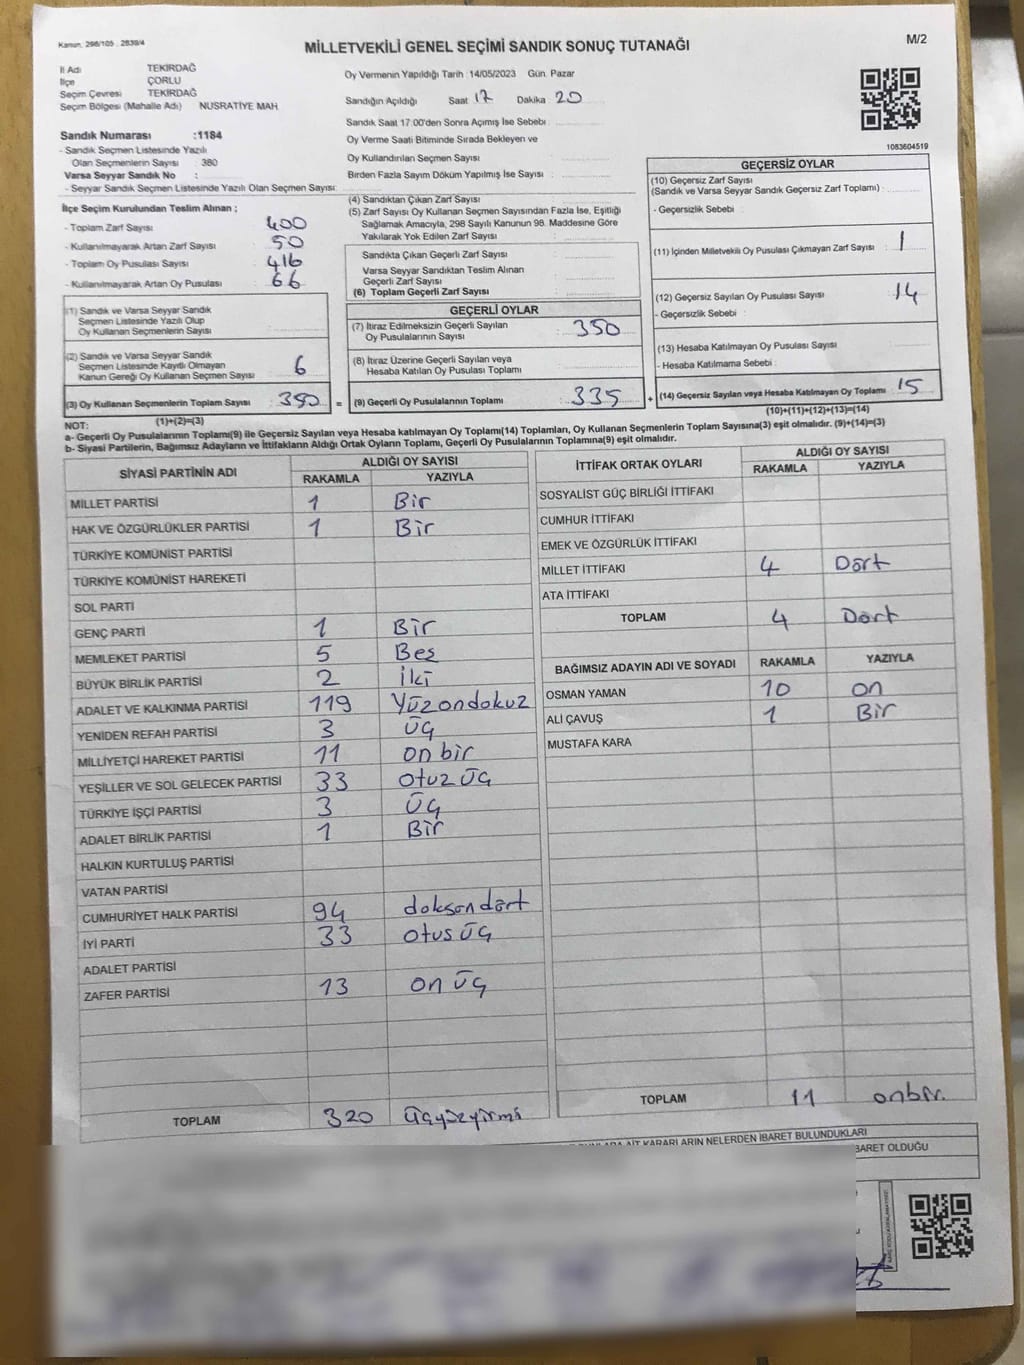 Kanun, 298/105 , 2839/4
MİLLETVEKİLİ GENEL SEÇİMİ SANDIK SONUÇ TUTANAĞI
M/2
İl Adı TEKİRDAĞ
İlçe ÇORLU
Seçim Çevresi TEKİRDAĞ
Seçim Bölgesi (Mahalle Adı) NUSRATİYE MAH.
Oy Vermenin Yapıldığı Tarih :14/05/2023 Gün. Pazar
Sandığın Açıldığı Saat 17 Dakika 20
Sandık Saat 17:00'den Sonra Açımış İse Sebebi :
Oy Verme Saati Bitiminde Sırada Bekleyen ve
Oy Kullandırılan Seçmen Sayısı :
Birden Fazla Sayım Döküm Yapılmış İse Sayısı :
1083604519
Sandık Numarası :1184
- Sandık Seçmen Listesinde Yazılı
Olan Seçmenlerin Sayısı : 380
Varsa Seyyar Sandık No :
- Seyyar Sandık Seçmen Listesinde Yazılı Olan Seçmen Sayısı:
İlçe Seçim Kurulundan Teslim Alınan ;
- Toplam Zarf Sayısı : 400
- Kullanılmayarak Artan Zarf Sayısı : 50
- Toplam Oy Pusulası Sayısı : 416
- Kullanılmayarak Artan Oy Pusulası : 66
(1) Sandık ve Varsa Seyyar Sandık
Seçmen Listesinde Yazılı Olup
Oy Kullanan Seçmenlerin Sayısı :
(2) Sandık ve Varsa Seyyar Sandık
Seçmen Listesinde Kayıtlı Olmayan
Kanun Gereği Oy Kullanan Seçmen Sayısı : 6
(3) Oy Kullanan Seçmenlerin Toplam Sayısı : 350 =
(1)+(2)=(3)
(4) Sandıktan Çıkan Zarf Sayısı :
(5) Zarf Sayısı Oy Kullanan Seçmen Sayısından Fazla İse, Eşitliği
Sağlamak Amacıyla, 298 Sayılı Kanunun 98. Maddesine Göre
Yakılarak Yok Edilen Zarf Sayısı :
Sandıkta Çıkan Geçerli Zarf Sayısı :
Varsa Seyyar Sandıktan Teslim Alınan
Geçerli Zarf Sayısı :
(6) Toplam Geçerli Zarf Sayısı :
GEÇERLİ OYLAR
(7) İtiraz Edilmeksizin Geçerli Sayılan
Oy Pusulalarının Sayısı : 350
(8) İtiraz Üzerine Geçerli Sayılan veya
Hesaba Katılan Oy Pusulası Toplamı :
(9) Geçerli Oy Pusulalarının Toplamı : 335 +
GEÇERSİZ OYLAR
(10) Geçersiz Zarf Sayısı
(Sandık ve Varsa Seyyar Sandık Geçersiz Zarf Toplamı) :
- Geçersizlik Sebebi :
(11) İçinden Milletvekili Oy Pusulası Çıkmayan Zarf Sayısı : 1
(12) Geçersiz Sayılan Oy Pusulası Sayısı : 14
- Geçersizlik Sebebi :
(13) Hesaba Katılmayan Oy Pusulası Sayısı :
- Hesaba Katılmama Sebebi :
(14) Geçersiz Sayılan veya Hesaba Katılmayan Oy Toplamı : 15
(10)+(11)+(12)+(13)=(14)
NOT:
a- Geçerli Oy Pusulalarının Toplamı(9) ile Geçersiz Sayılan veya Hesaba katılmayan Oy Toplamı(14) Toplamları, Oy Kullanan Seçmenlerin Toplam Sayısına(3) eşit olmalıdır. (9)+(14)=(3)
b- Siyasi Partilerin, Bağımsız Adayların ve İttifakların Aldığı Ortak Oyların Toplamı, Geçerli Oy Pusulalarının Toplamına(9) eşit olmalıdır.
SİYASİ PARTİNİN ADI ALDIĞI OY SAYISI
RAKAMLA YAZIYLA
MİLLET PARTİSİ 1 Bir
HAK VE ÖZGÜRLÜKLER PARTİSİ 1 Bir
TÜRKİYE KOMÜNİST PARTİSİ
TÜRKİYE KOMÜNİST HAREKETİ
SOL PARTİ
GENÇ PARTİ 1 Bir
MEMLEKET PARTİSİ 5 Beş
BÜYÜK BİRLİK PARTİSİ 2 İki
ADALET VE KALKINMA PARTİSİ 119 Yüzondokuz
YENİDEN REFAH PARTİSİ 3 Üç
MİLLİYETÇİ HAREKET PARTİSİ 11 on bir
YEŞİLLER VE SOL GELECEK PARTİSİ 33 otuz üç
TÜRKİYE İŞÇİ PARTİSİ 3 Üç
ADALET BİRLİK PARTİSİ 1 Bir
HALKIN KURTULUŞ PARTİSİ
VATAN PARTİSİ
CUMHURİYET HALK PARTİSİ 94 doksan dört
İYİ PARTİ 33 otus üç
ADALET PARTİSİ
ZAFER PARTİSİ 13 on üç
TOPLAM 320 üçyüzyirmi
İTTİFAK ORTAK OYLARI ALDIĞI OY SAYISI
RAKAMLA YAZIYLA
SOSYALİST GÜÇ BİRLİĞİ İTTİFAKI
CUMHUR İTTİFAKI
EMEK VE ÖZGÜRLÜK İTTİFAKI
MİLLET İTTİFAKI 4 Dört
ATA İTTİFAKI
TOPLAM 4 Dört
BAĞIMSIZ ADAYIN ADI VE SOYADI RAKAMLA YAZIYLA
OSMAN YAMAN 10 on
ALİ ÇAVUŞ 1 Bir
MUSTAFA KARA
TOPLAM 11 onbir.
AİT KARARLARIN NELERDEN İBARET BULUNDUKLARI
BARET OLDUĞU